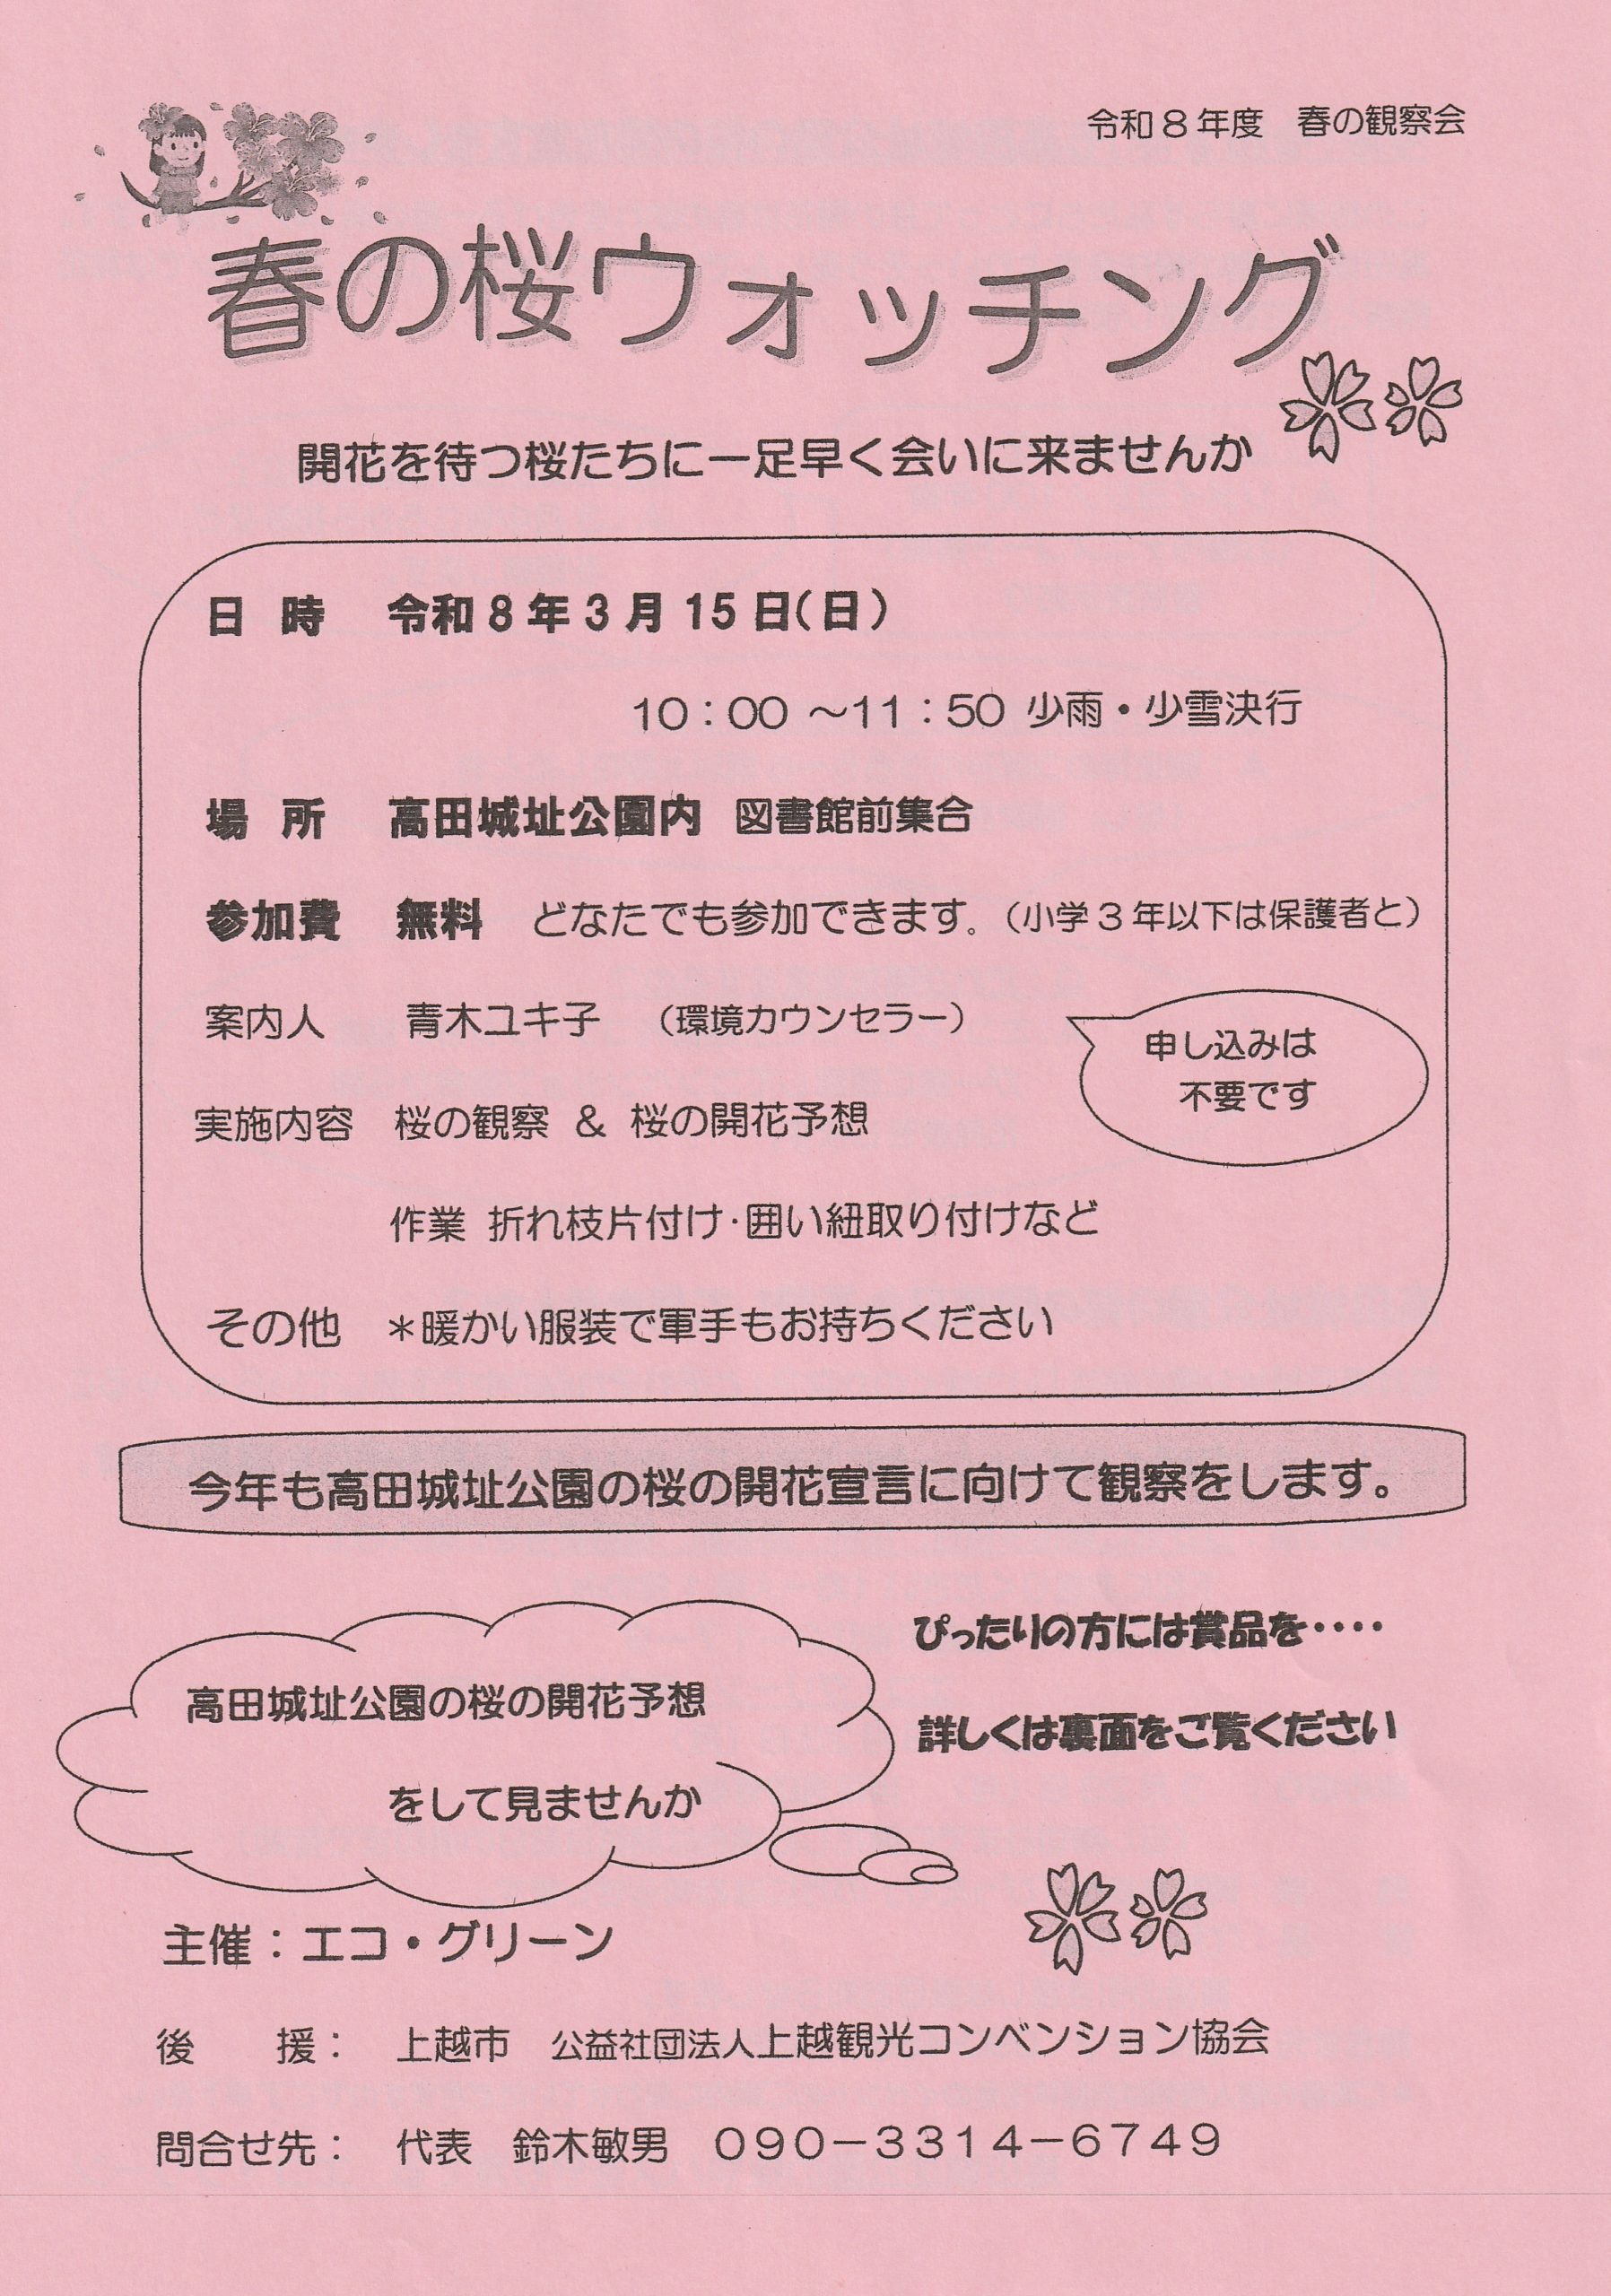 令和8年度　春の観察会
春の桜ウォッチング
開花を待つ桜たちに一足早く会いに来ませんか
日　時　令和8年3月15日(日)
10：00 ～11：50 少雨・少雪決行
場　所　高田城址公園内　図書館前集合
参加費　無料　どなたでも参加できます。（小学3年以下は保護者と）
案内人　青木ユキ子　（環境カウンセラー）
申し込みは
不要です
実施内容　桜の観察 ＆ 桜の開花予想
作業 折れ枝片付け・囲い紐取り付けなど
その他　＊暖かい服装で軍手もお持ちください
今年も高田城址公園の桜の開花宣言に向けて観察をします。
ぴったりの方には賞品を‥‥
高田城址公園の桜の開花予想
詳しくは裏面をご覧ください
をして見ませんか
主催：エコ・グリーン
後　　援：　上越市　公益社団法人上越観光コンベンション協会
問合せ先：　代表　鈴木敏男　０９０－３３１４－６７４９